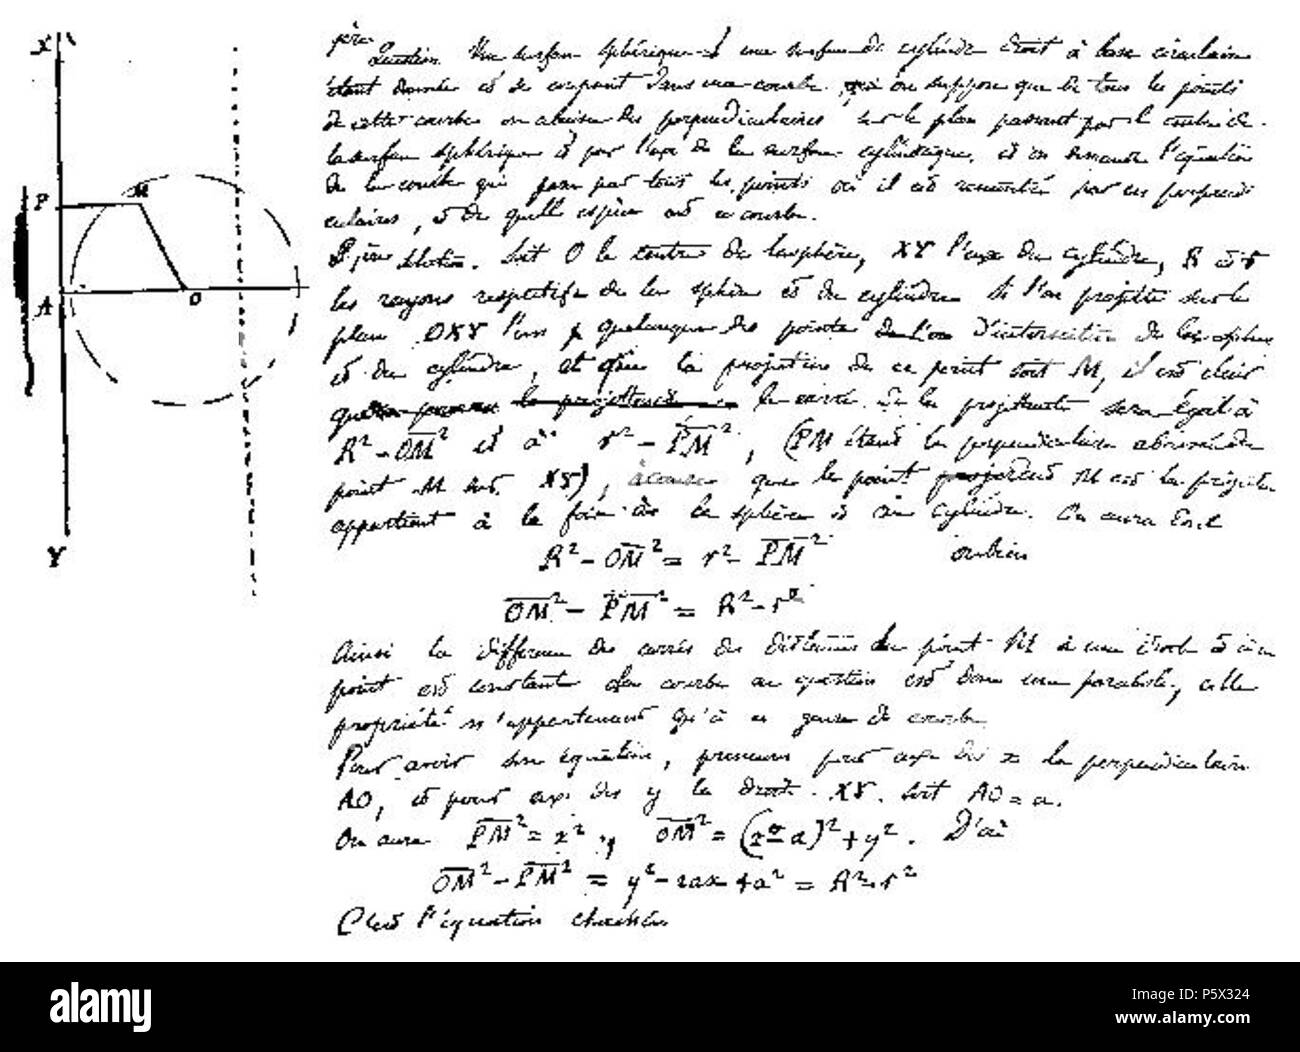 1ère Question. Une surface sphérique et une surface de cylindre droit à base circulaire
étant données et se coupant dans une courbe, on suppose que de tous les points
de cette courbe on abaisse des perpendiculaires sur le plan passant par le centre de
la surface sphérique et par l'axe de la surface cylindrique, et on demande l'équation
de la courbe qui passe par tous les points où il est rencontré par ces perpendi
culaires, et de quelle espèce est la courbe.
1ère Solution. Soit O le centre de la sphère, XY l'axe du cylindre, R et r
les rayons respectifs de la sphère et du cylindre Si l'on projette sur le
plan OXY l'un quelconque des points d'intersection de la sphère
et du cylindre, et que la projection de ce point soit M, il est clair
que le carré de la projettante sera égal à
R² - OM² et à r² - PM², (PM étant la perpendiculaire abaissée du
point M sur XY), à cause que le point M est la projetée
appartient à la fois à la sphère et au cylindre. On aura donc
R² - OM² = r² - PM² ou bien
OM² - PM² = R² - r²
Ainsi la différence des carrés des distances du point M à une droite et à un
point est constante La courbe en question est donc une parabole, cette
propriété n'appartenant qu'à ce genre de courbe
Pour avoir son équation, prenons pour axe des x la perpendiculaire
AO, et pour axe des y la droite XY. Soit AO = a.
On aura PM² = x², OM² = (x - a)² + y². D'où
OM² - PM² = y² - 2ax + a² = R² - r²
C'est l'équation cherchée
X
P
M
A
O
Y
alamy
Image ID: P5X324
www.alamy.com